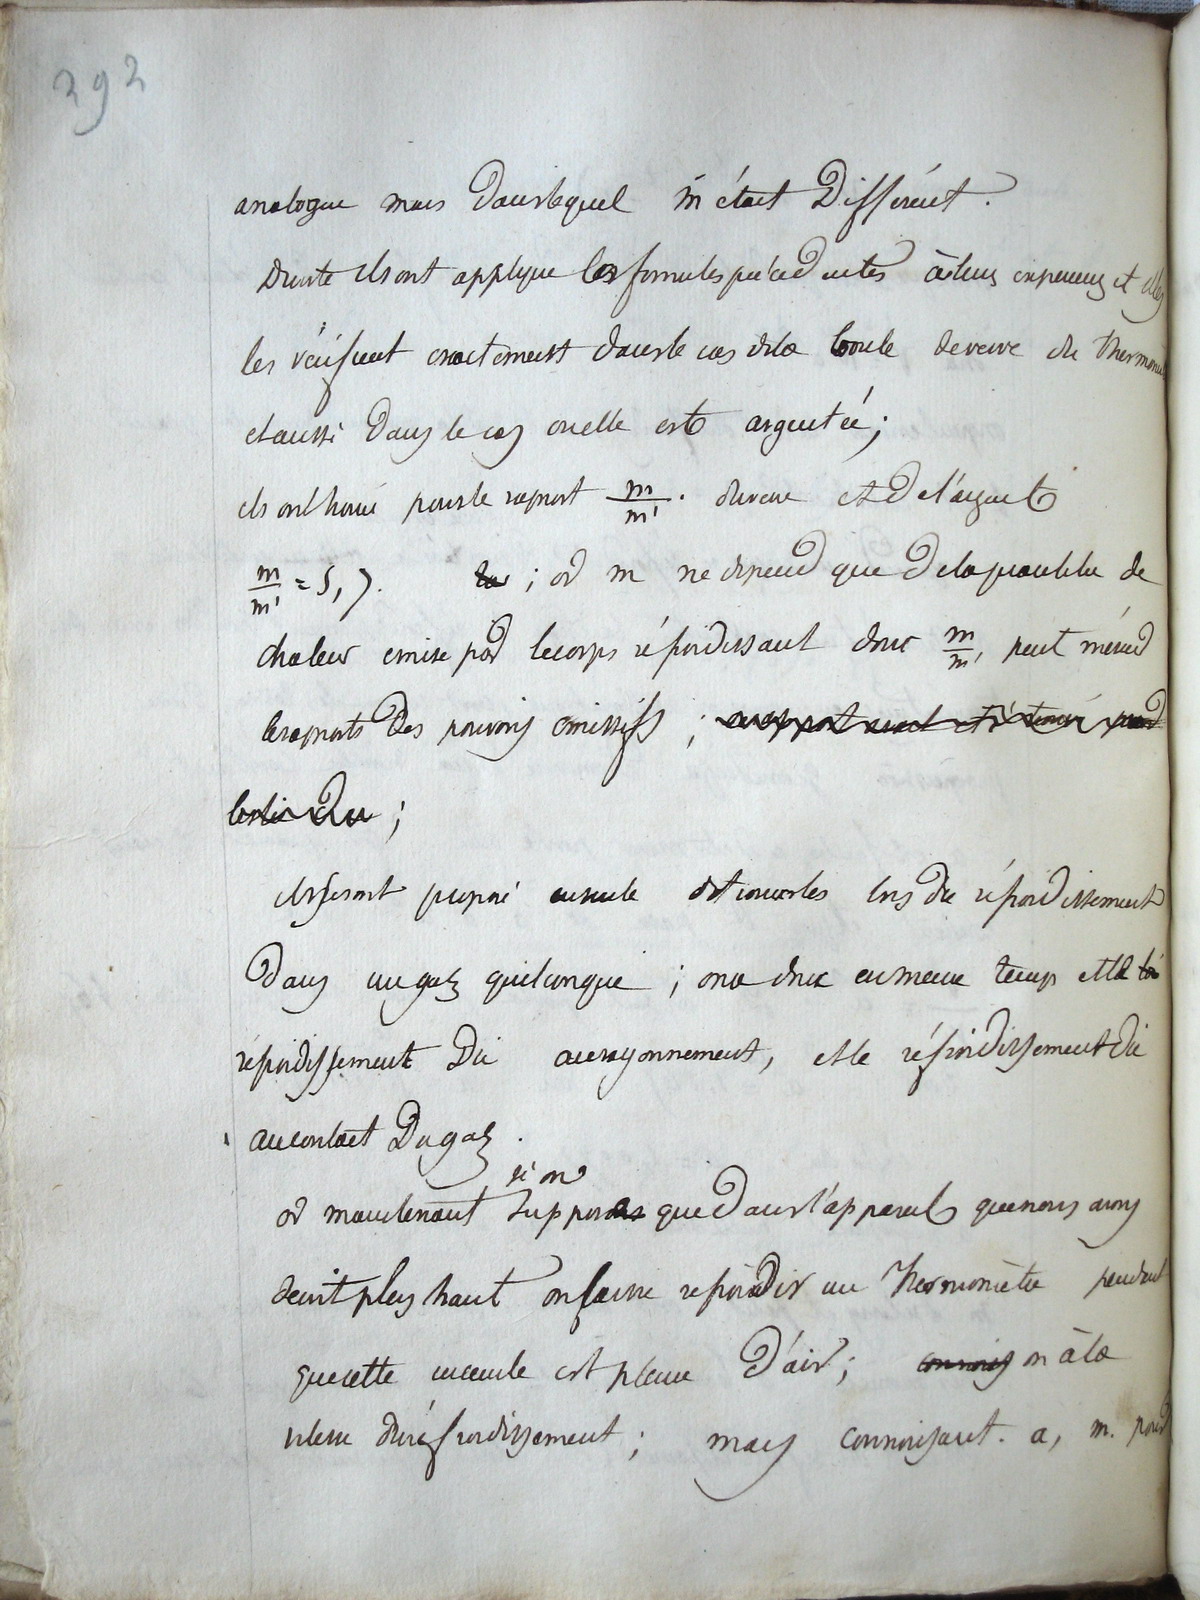 292
analogue mais dans lequel m était Différent.
Ensuite ils ont appliqué les formules précédentes à leurs expériences et elles
les vérifient exactement dans le cas de la boule de verre du thermom
et aussi Dans le cas ou elle est argentée;
ils ont trouvé pour le rapport m/m'. du verre et de l'argent
m/m' = 5,7. ; or m ne dépend que de la quantité de
chaleur emise par le corps réfroidissant donc m/m', peut
les rapports des pouvoirs émissifs ; rapport avait été trouvé par
;
ils se sont proposé ensuite de trouver les lois du réfroidissement
Dans un gaz quelconque ; on a donc en meme temps et le
réfroidissement Du au rayonnement, et le réfroidissement du
au contact Du gaz.
si on
or maintenant suppose que dans l'appareil que nous avons
décrit plus haut on laisse refroidir un thermomètre pendant
que cette enceinte est pleine D'air; connois on à la
vitesse du réfroidissement ; mais connoissant. a, m. pour